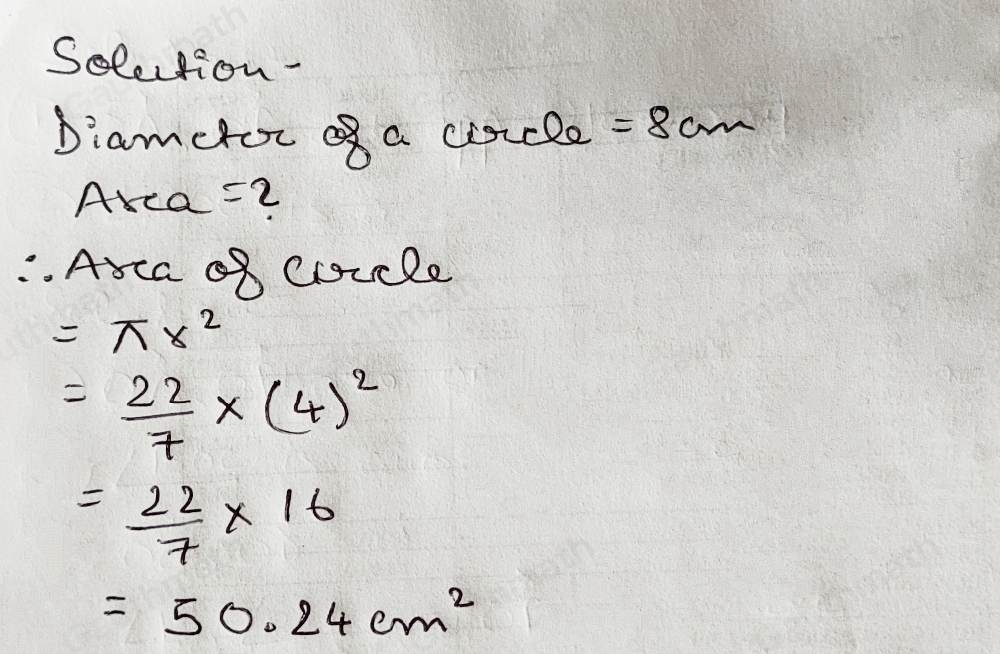 Solution -
Diameter of a circle = 8 cm
Area = ?
∴ Area of circle
= πr²
= 22/7 × (4)²
= 22/7 × 16
= 50.24 cm²